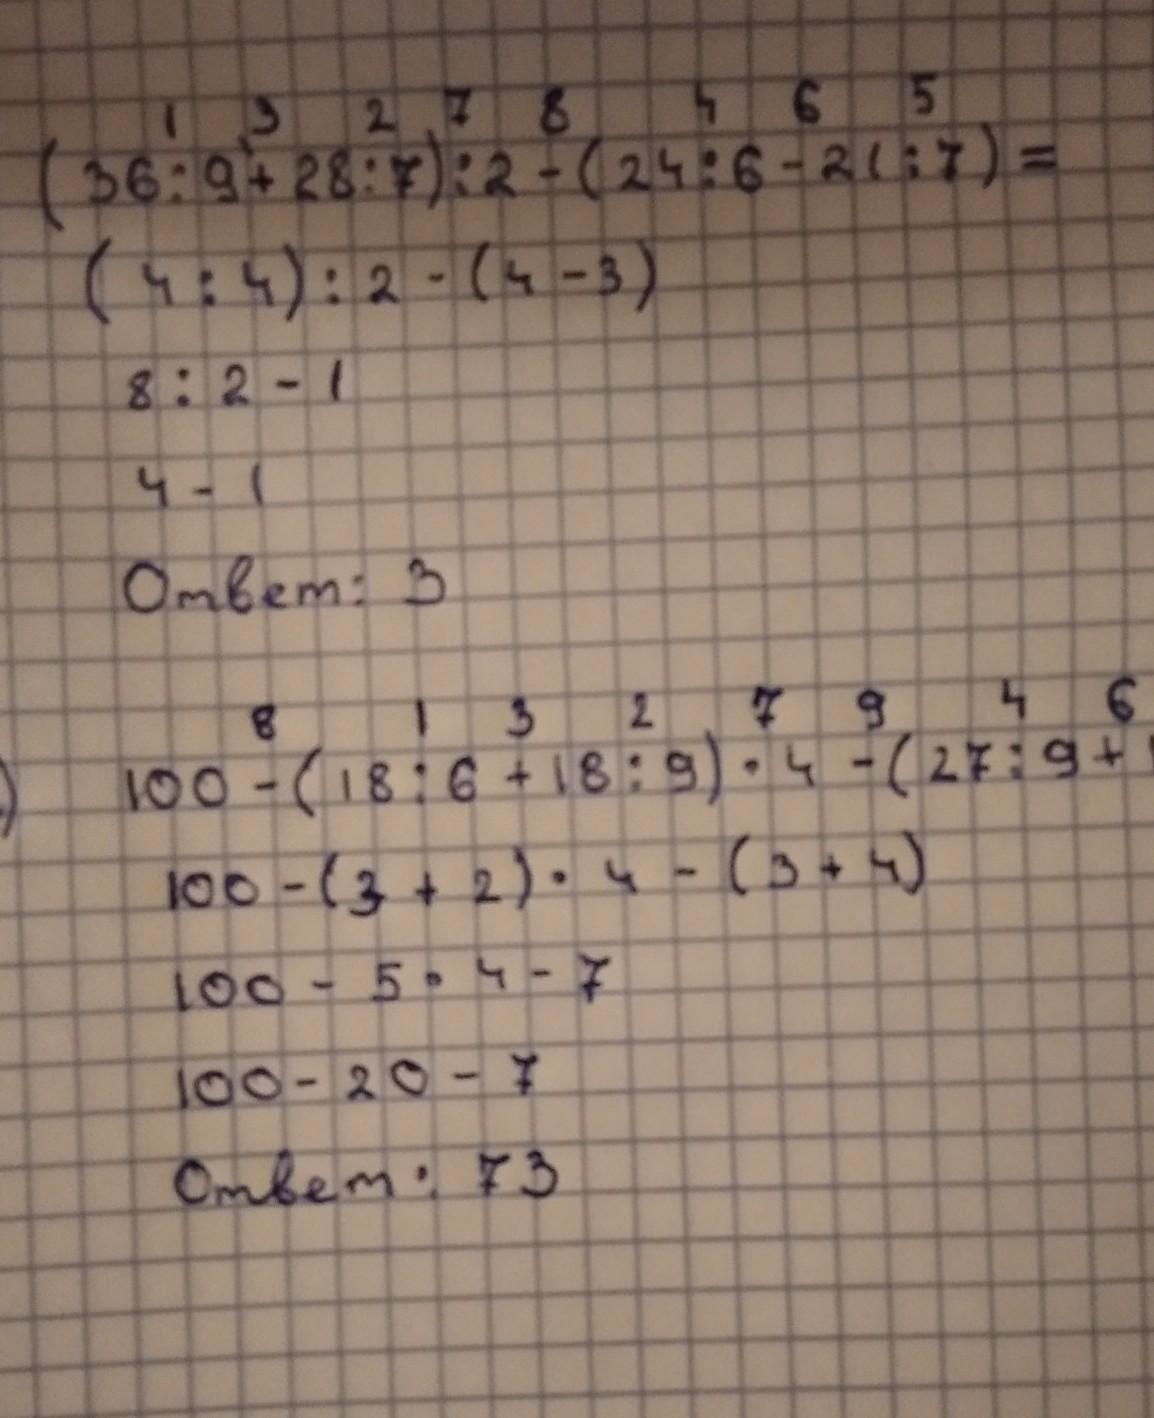 1 3 2 7 8 4 6 5
(36:9+28:7):2-(24:6-21:7)=
(4:4):2-(4-3)
8:2-1
4-1
Ответ: 3
8 1 3 2 7 9 4 6
) 100-(18:6+18:9)·4-(27:9+
100-(3+2)·4-(3+4)
100-5·4-7
100-20-7
Ответ: 73